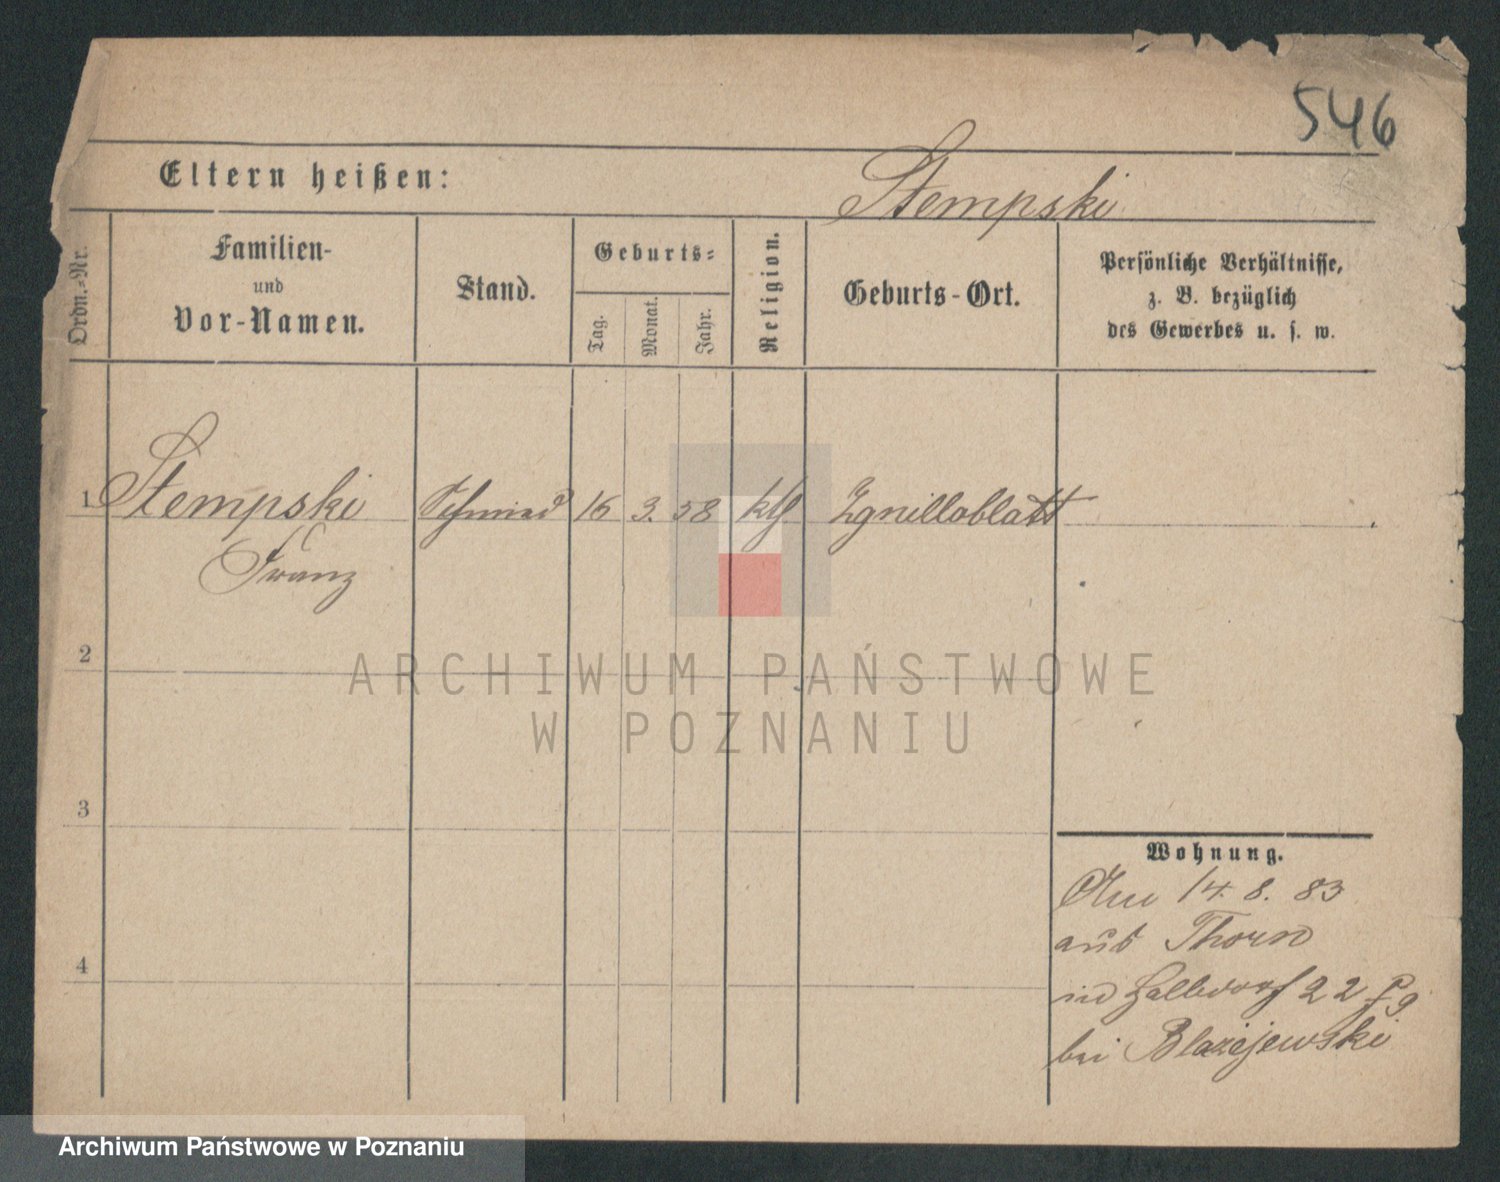 546
Eltern heißen: Stempski
Ordn.-Nr.
Familien-
und
Vor-Namen.
Stand.
Geburts-
Tag.
Monat.
Jahr.
Religion.
Geburts-Ort.
Persönliche Verhältnisse,
z. B. bezüglich
des Gewerbes u. s. w.
1 Stempski Schmied 16 3. 58 kth Zgnilloblott
Franz
2
3
4
Wohnung.
14. 8. 83
aus Thorn
in Halbdorf 22
bei Blazejewski
ARCHIWUM PAŃSTWOWE
W POZNANIU
Archiwum Państwowe w Poznaniu